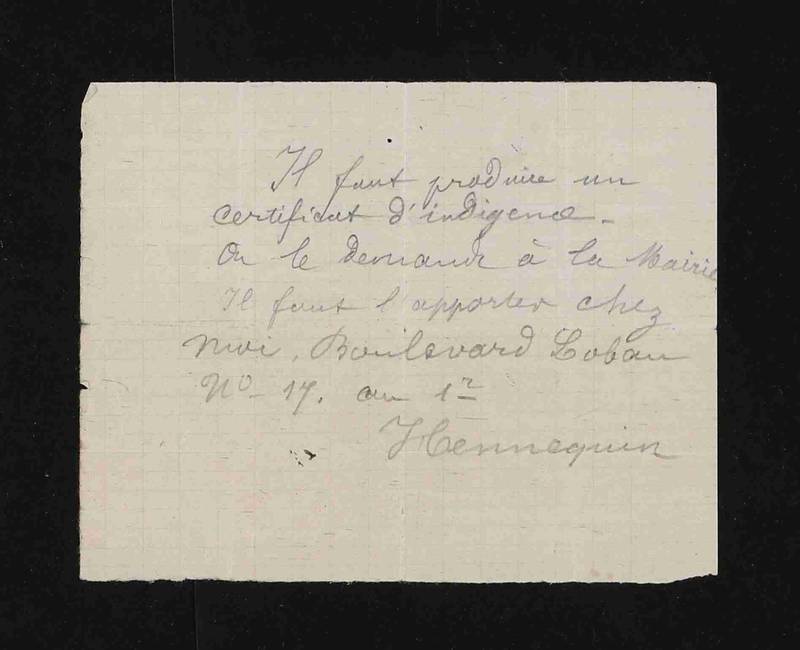 Il faut produire un
certificat d'indigence.
On le demande à la Mairie
Il faut l'apporter chez
moi, Boulevard Lobau
No 17. au 1er
Hennequin